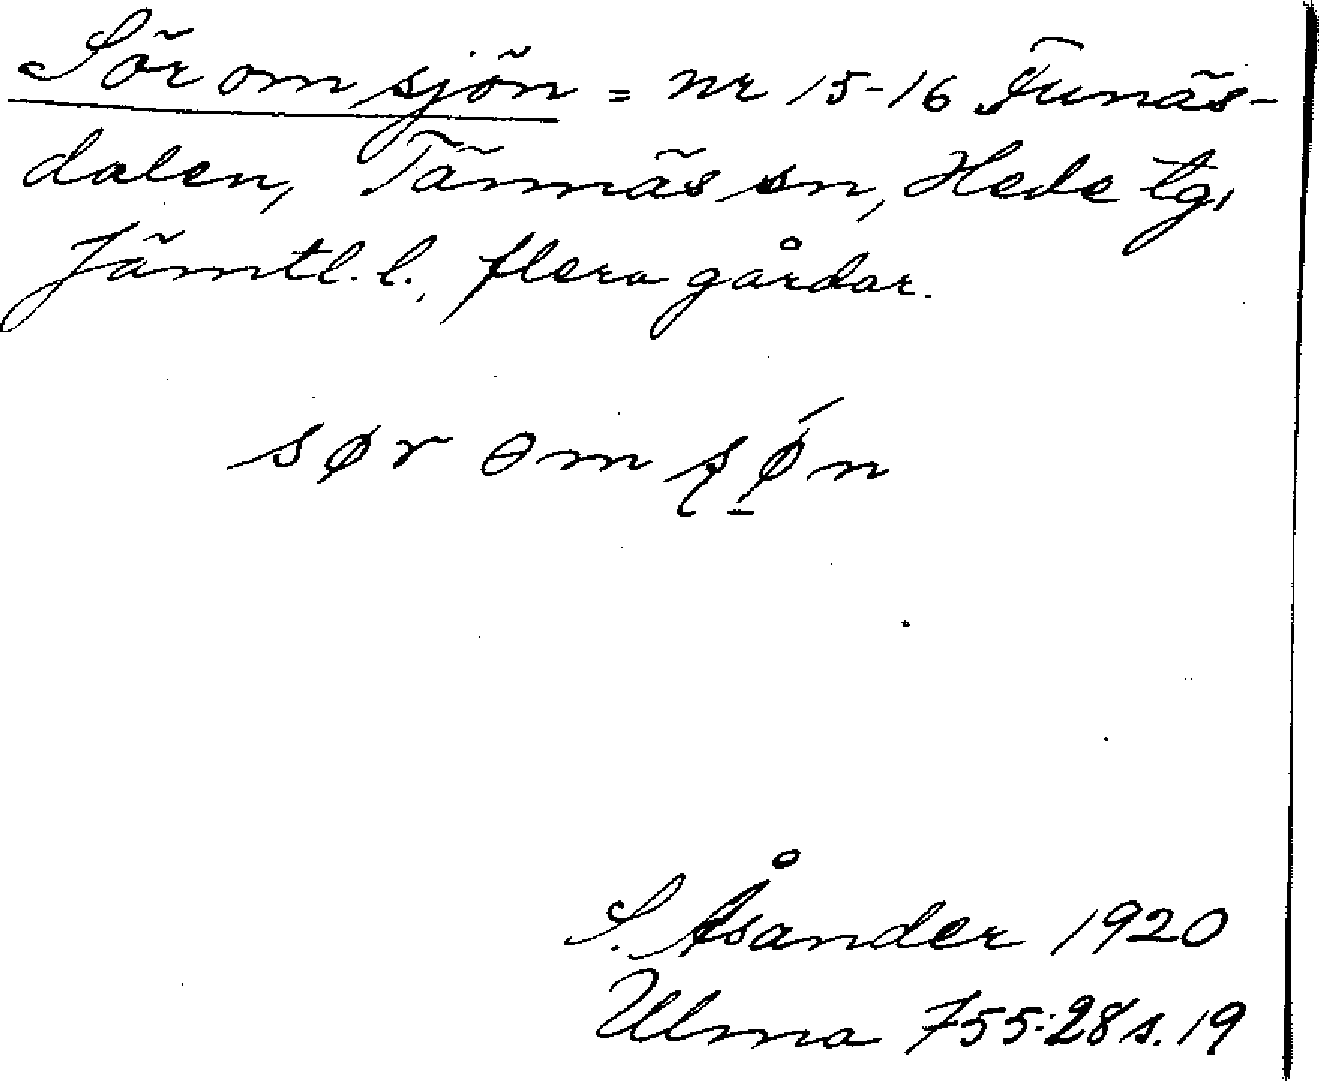 Sör om sjön = nr 15-16 Funäs-
dalen, Tännäs sn, Hede tg,
Jämtl. l., flera gårdar.
sør om
S. Åsander 1920
Ulma 755:28 s. 19